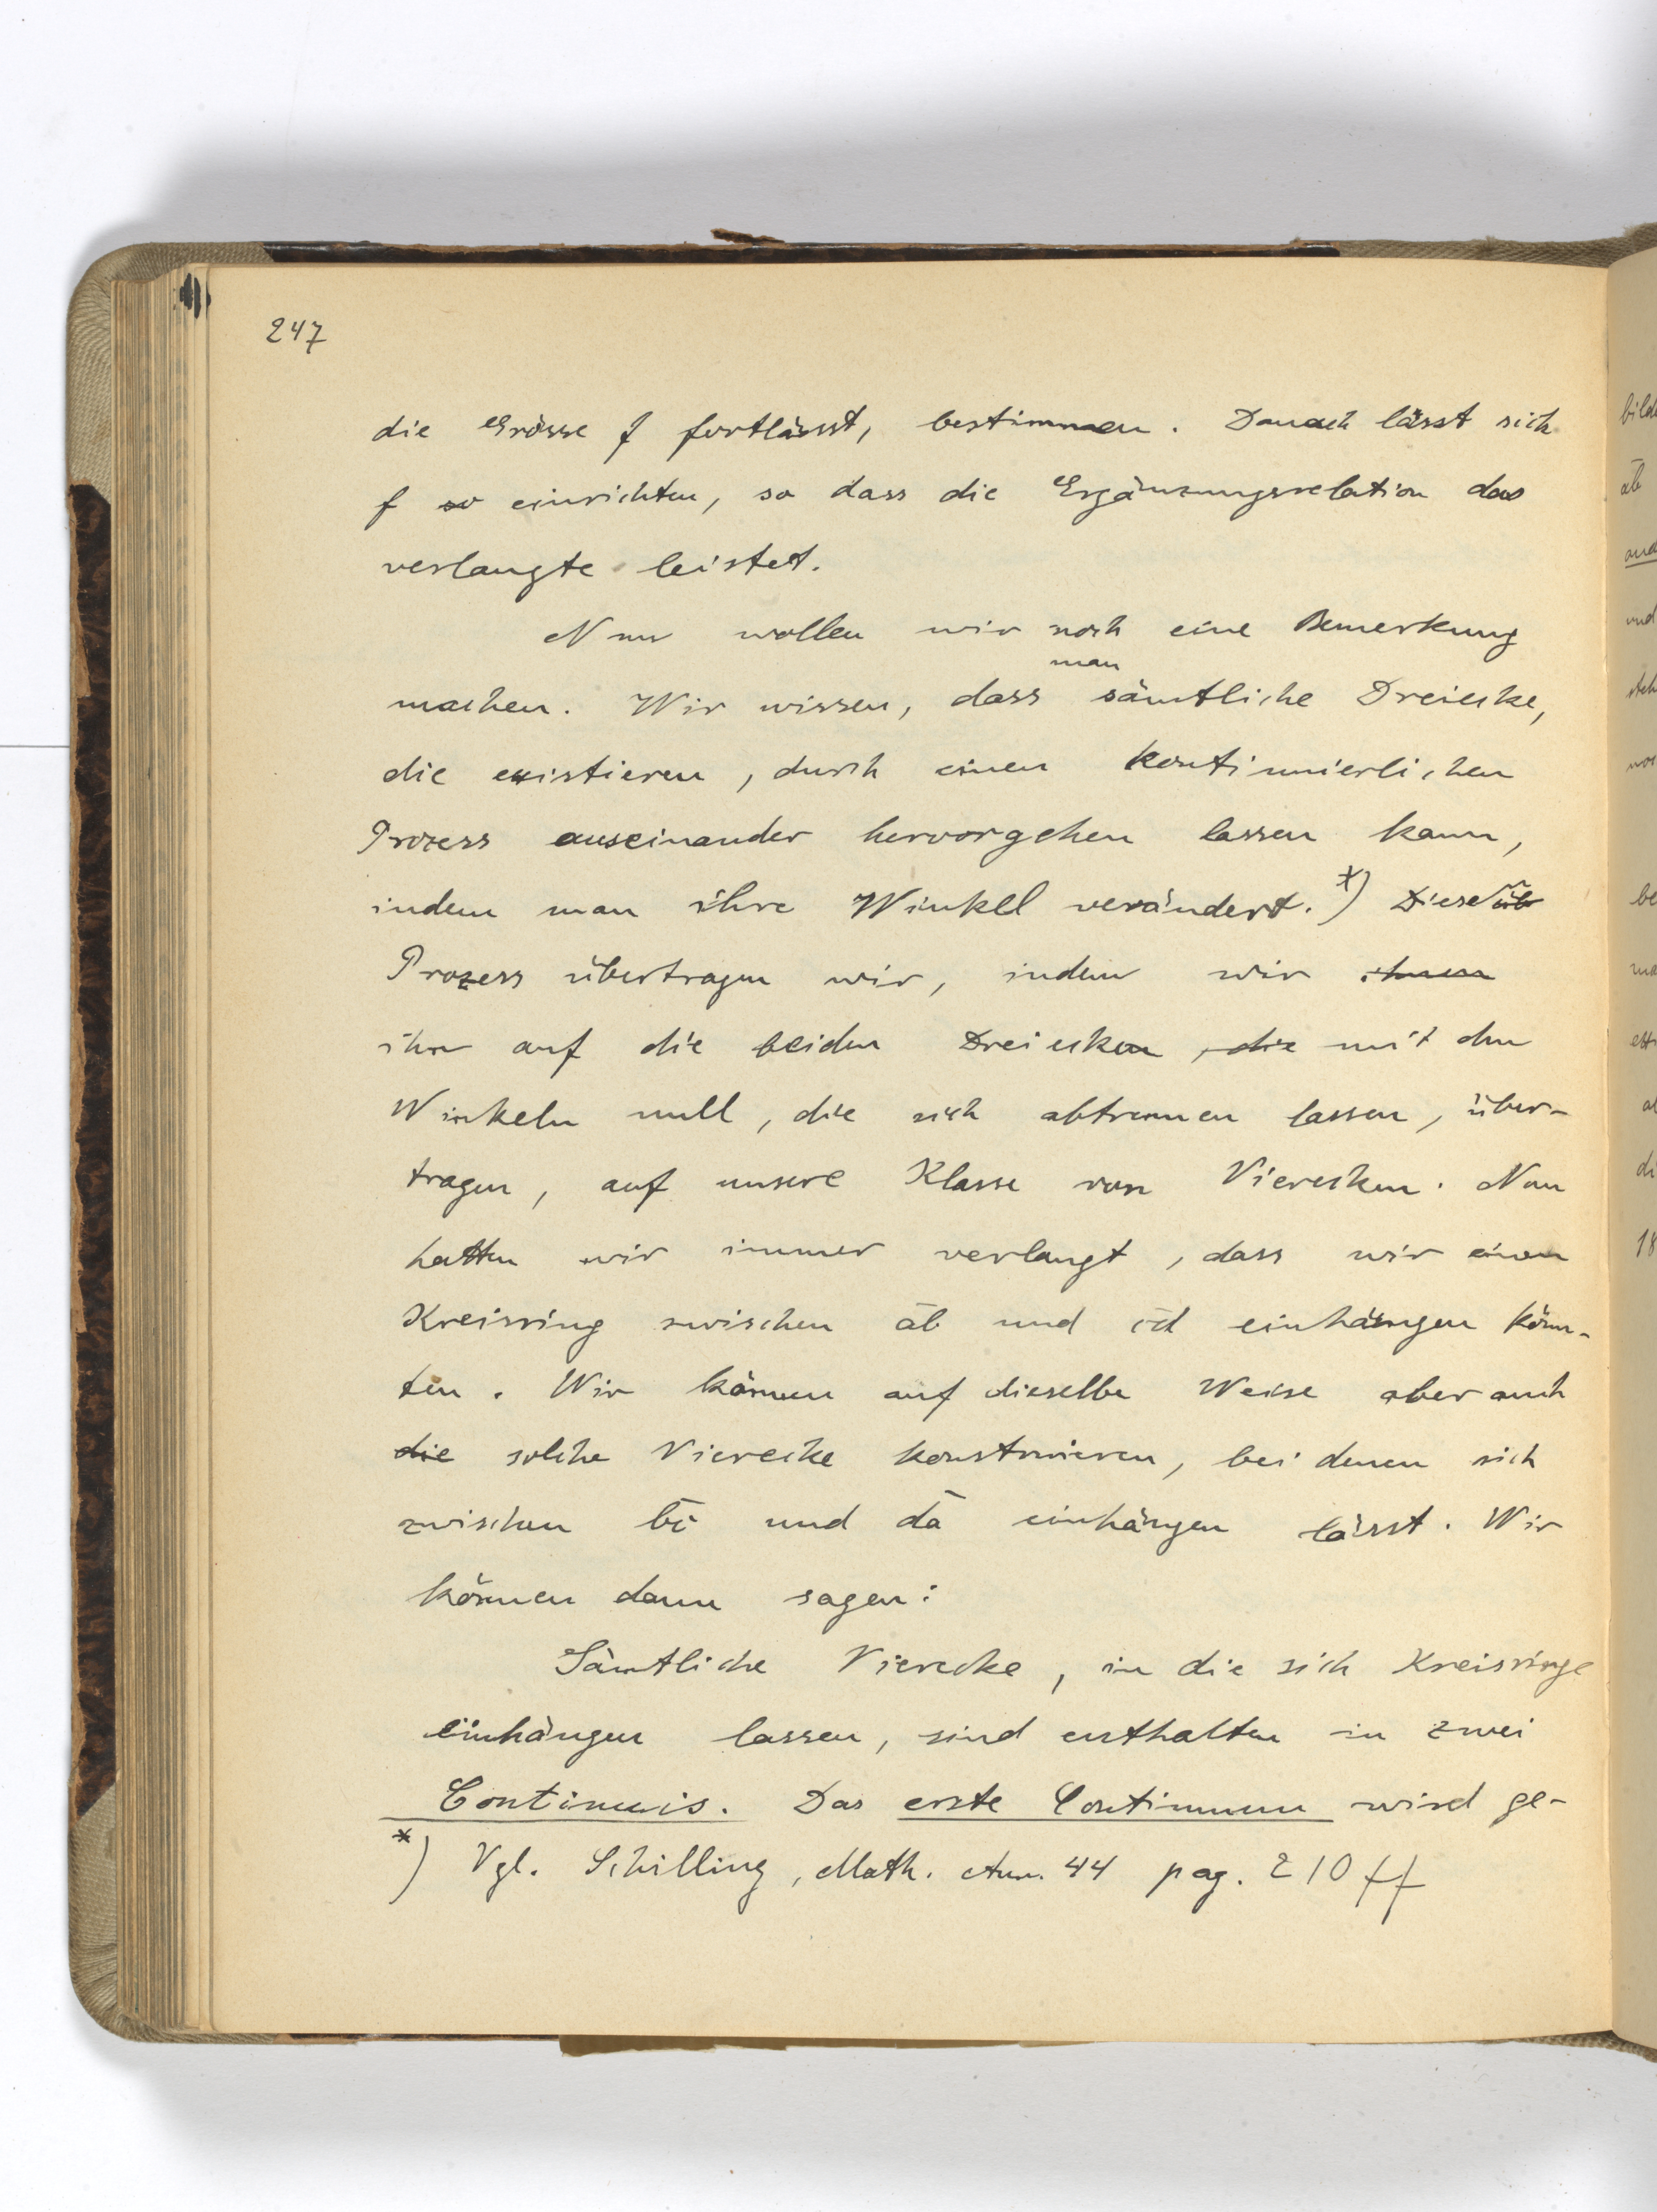 247
die Grösse f fortlässt, bestimmen. Danach lässt sich
f so einrichten, so dass die Ergänzungsrelation das
verlangte leistet.
Nun wollen wir noch eine Bemerkung
man
machen. Wir wissen, dass sämtliche Dreiecke,
die existieren, durch einen kontinuierlichen
Prozess auseinander hervorgehen lassen kann,
indem man ihre Winkel verändert. *) Diesen üb
Prozess übertragen wir, indem wir ihnen
ihn auf die beiden Dreiecken, die mit den
Winkeln null, die sich abtrennen lassen, über-
tragen, auf unsere Klasse von Vierecken. Nun
hatten wir immer verlangt, dass wir einen
Kreisring zwischen āb und c̄d einhängen könn-
ten. Wir können auf dieselbe Weise aber auch
die solche Vierecke konstruieren, bei denen sich
zwischen bc̄ und dā einhängen lässt. Wir
können dann sagen:
Sämtliche Vierecke, in die sich Kreisringe
einhängen lassen, sind enthalten in zwei
Continuis. Das erste Continuum wird ge-
*) Vgl. Schilling, Math. Ann. 44 pag. 210 ff
bild
āb
and
und
steh
be
ma
di
18